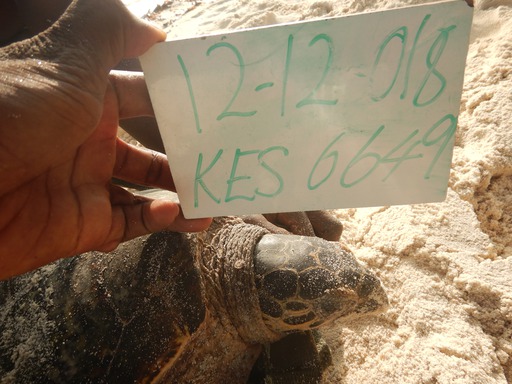 12-12-018
KES 6649